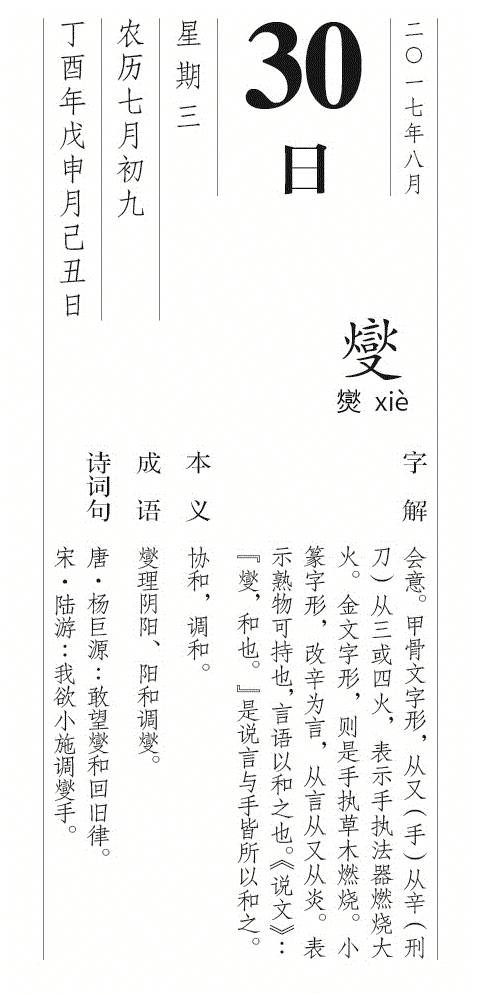 二〇一七年八月
30
日
星期三
农历七月初九
丁酉年戊申月己丑日
燮
燮 xiè
字解
会意。甲骨文字形，从又(手)从辛(刑
刀)从三或四火，表示手执法器燃烧大
火。金文字形，则是手执草木燃烧。小
篆字形，改辛为言，从言从又从炎。表
示熟物可持也，言语以和之也。《说文》：
『燮，和也。』是说言与手皆所以和之。
本义
协和，调和。
成语
燮理阴阳、阳和调燮。
诗词句
唐·杨巨源：敢望燮和回旧律。
宋·陆游：我欲小施调燮手。